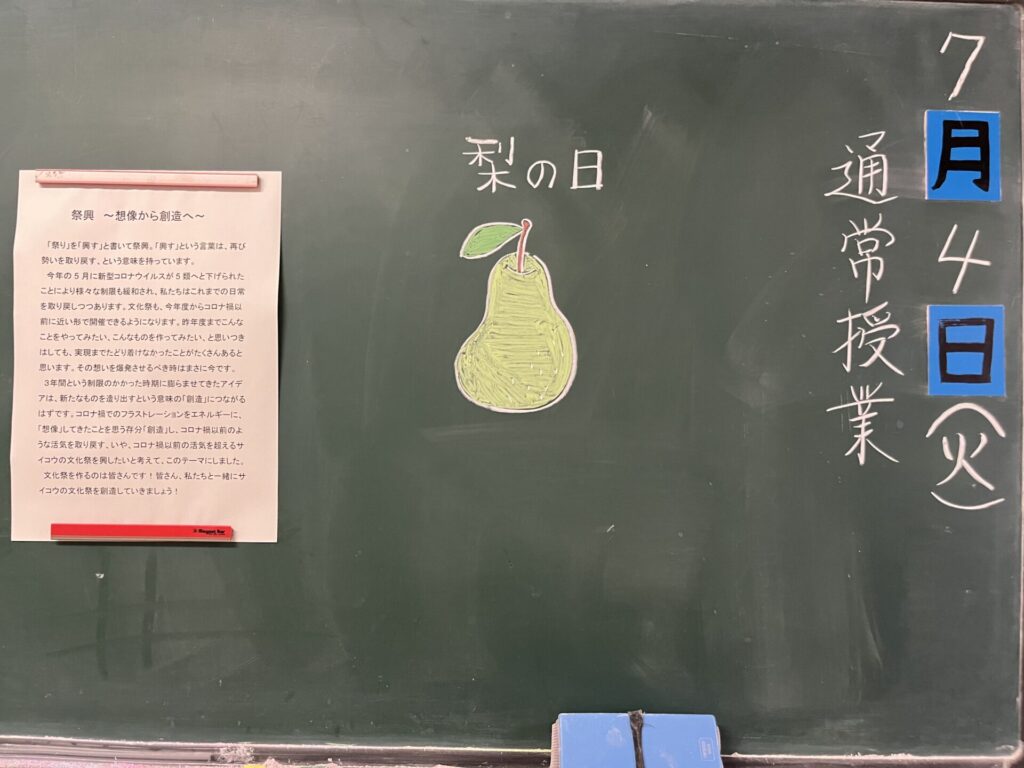 7月4日(火)
通常授業
梨の日
祭興 ～想像から創造へ～
「祭り」を「興す」と書いて祭興。「興す」という言葉は、再び
勢いを取り戻す、という意味を持っています。
今年の5月に新型コロナウイルスが5類へと下げられた
ことにより様々な制限も緩和され、私たちはこれまでの日常
を取り戻しつつあります。文化祭も、今年度からコロナ禍以
前に近い形で開催できるようになります。昨年度までこんな
ことをやってみたい、こんなものを作ってみたい、と思いつき
はしても、実現までたどり着けなかったことがたくさんあると
思います。その想いを爆発させるべき時はまさに今です。
3年間という制限のかかった時期に膨らませてきたアイデ
アは、新たなものを造り出すという意味の「創造」につながる
はずです。コロナ禍でのフラストレーションをエネルギーに、
「想像」してきたことを思う存分「創造」し、コロナ禍以前のよ
うな活気を取り戻す、いや、コロナ禍以前の活気を超えるサ
イコウの文化祭を興したいと考えて、このテーマにしました。
文化祭を作るのは皆さんです！皆さん、私たちと一緒にサ
イコウの文化祭を創造していきましょう！